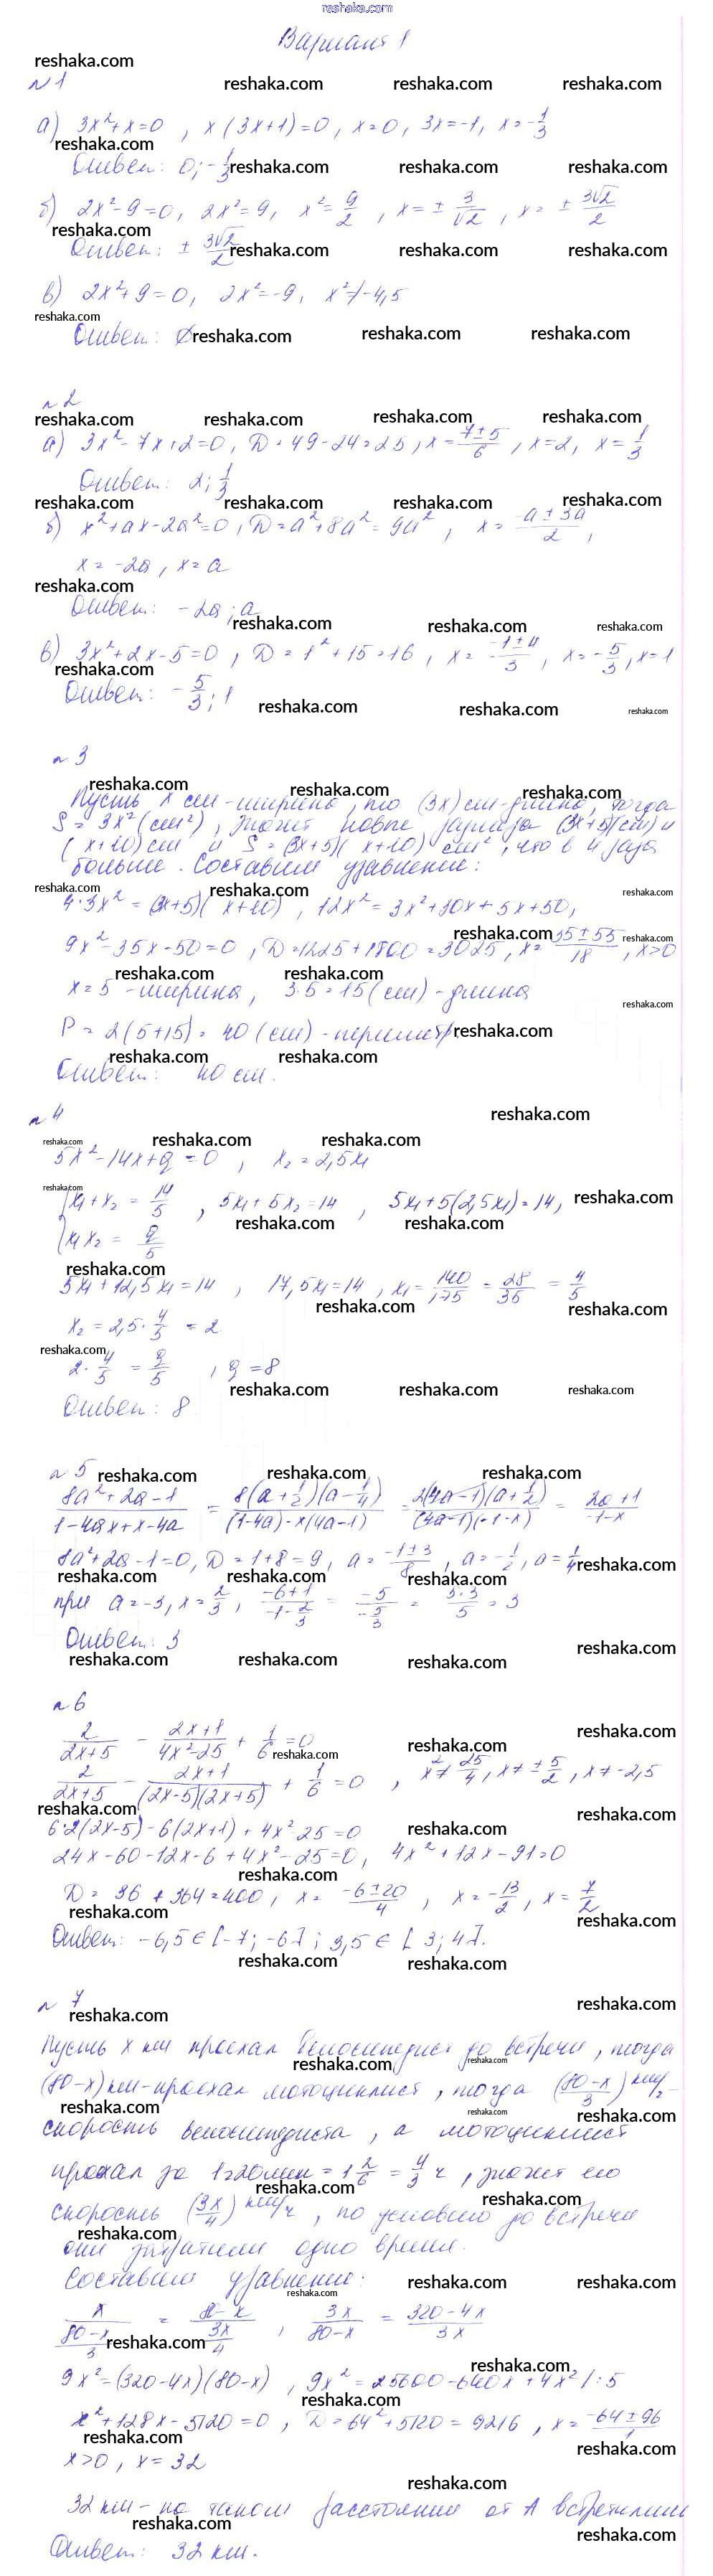 reshaka.com
Вариант 1
№1
а) 3x²+x=0, x(3x+1)=0, x=0, 3x=-1, x=-1/3
Ответ: 0; -1/3
б) 2x²-9=0, 2x²=9, x²=9/2, x=±3/√2, x=±3√2/2
Ответ: ±3√2/2
в) 2x²+9=0, 2x²=-9, x²≠-4,5
Ответ: ∅
№2
а) 3x²-7x+2=0, D=49-24=25, x=(7±5)/6, x=2, x=1/3
Ответ: 2; 1/3
б) x²+ax-2a²=0, D=a²+8a²=9a², x=(-a±3a)/2,
x=-2a, x=a
Ответ: -2a; a
в) 3x²+2x-5=0, D=1²+15=16, x=(-1±4)/3, x=-5/3, x=1
Ответ: -5/3; 1
№3
Пусть x см-ширина, то (3x) см-длина, тогда
S=3x²(см²), значит новые размеры (3x+5)(см) и
(x+10)см и S=(3x+5)(x+10) см², что в 4 раза
больше. Составим уравнение:
4·3x²=(3x+5)(x+10), 12x²=3x²+30x+5x+50,
9x²-35x-50=0, D=1225+1800=3025, x=(35±55)/18, x>0
x=5-ширина, 3·5=15(см)-длина
P=2(5+15)=40(см)-периметр
Ответ: 40 см.
№4
5x²-14x+q=0, x₂=2,5x₁
{x₁+x₂=14/5, 5x₁+5x₂=14, 5x₁+5(2,5x₁)=14,
{x₁x₂=q/5
5x₁+12,5x₁=14, 17,5x₁=14, x₁=140/175=28/35=4/5
x₂=2,5·4/5=2
2·4/5=q/5, q=8
Ответ: 8
№5
(8a²+2a-1)/(1-4ax+x-4a)=8(a+1/2)(a-1/4)/((1-4a)-x(4a-1))=2(4a-1)(a+1/2)/((4a-1)(-1-x))=(2a+1)/(-1-x)
8a²+2a-1=0, D=1+8=9, a=(-1±3)/8, a=-1/2, a=1/4
при a=-3, x=2/3, (-6+1)/(-1-2/3)=-5/(-5/3)=5·3/5=3
Ответ: 3
№6
2/(2x+5)-(2x+1)/(4x²-25)+1/6=0
2/(2x+5)-(2x+1)/((2x-5)(2x+5))+1/6=0, x²≠25/4, x≠±5/2, x≠-2,5
6·2(2x-5)-6(2x+1)+4x²-25=0
24x-60-12x-6+4x²-25=0, 4x²+12x-91=0
D=36+364=400, x=(-6±20)/4, x=-13/2, x=7/2
Ответ: -6,5∈[-7;-6]; 3,5∈[3;4].
№7
Пусть x км проехал велосипедист до встречи, тогда
(80-x)км-проехал мотоциклист, тогда ((80-x)/3) км/ч-
скорость велосипедиста, а мотоциклист
проехал за 1ч20мин=1 2/6=4/3 ч, значит его
скорость (3x/4) км/ч, по условию до встречи
они затратили одно время.
Составим уравнение:
x/((80-x)/3)=(80-x)/(3x/4), 3x/(80-x)=(320-4x)/3x
9x²=(320-4x)(80-x), 9x²=25600-640x+4x² /:5
x²+128x-5120=0, D=64²+5120=9216, x=(-64±96)/1
x>0, x=32
32 км-на таком расстоянии от А встретились
Ответ: 32 км.